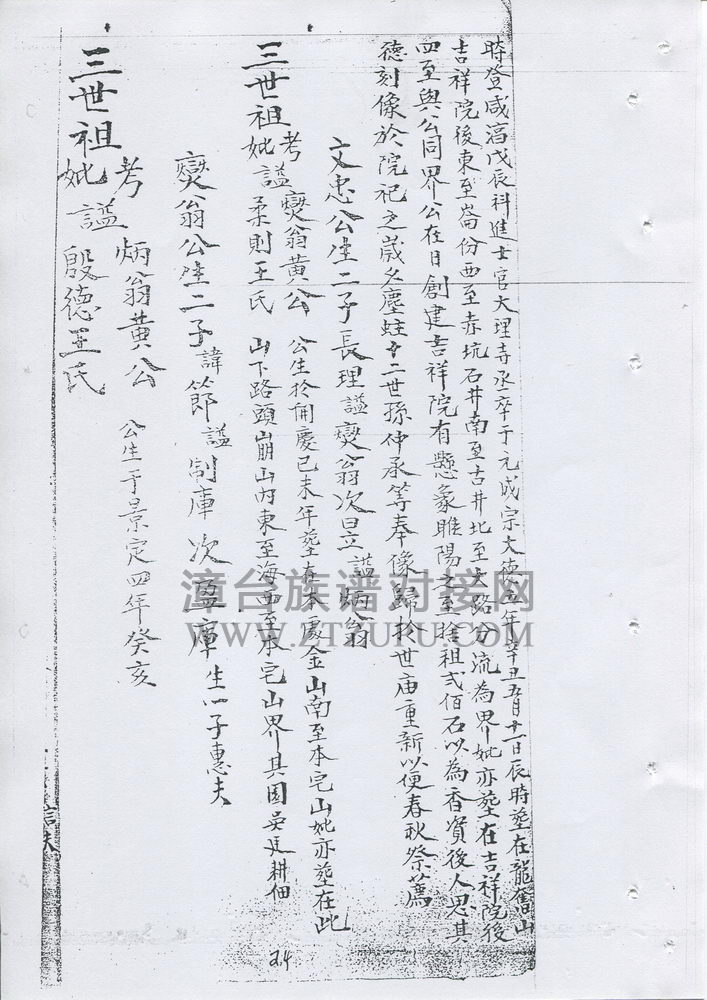 時登咸淳戊辰科進士官大理寺丞卒于元成宗大德五年辛丑五月十一日辰時塟在龍奮山
吉祥院後東至崙份西至赤坑石井南至古井北至大路分流為界妣亦塟在吉祥院後
四至與公同界公在日創建吉祥院有懸象睢陽之至捨祖弍佰石以為香資後人思其
德刻像於院祀之歲久塵蛀十二世孫仲承等奉像歸於世庙重新以便春秋祭薦
文忠公生二子長理諡爕翁次曰立諡炳翁
三世祖考諡爕翁黄公 公生於開慶己未年塟在本處金山南至本宅山妣亦塟在此
妣諡柔則王氏 山下路頭崩山内東至海西至本宅山界其園吳廷耕佃
爕翁公生二子諱節諡制庫次盈庫生一子惠夫
三世祖考炳翁黄公 公生于景定四年癸亥
妣諡殷德王氏
24
漳台族谱对接网
WWW.ZTZUPU.COM